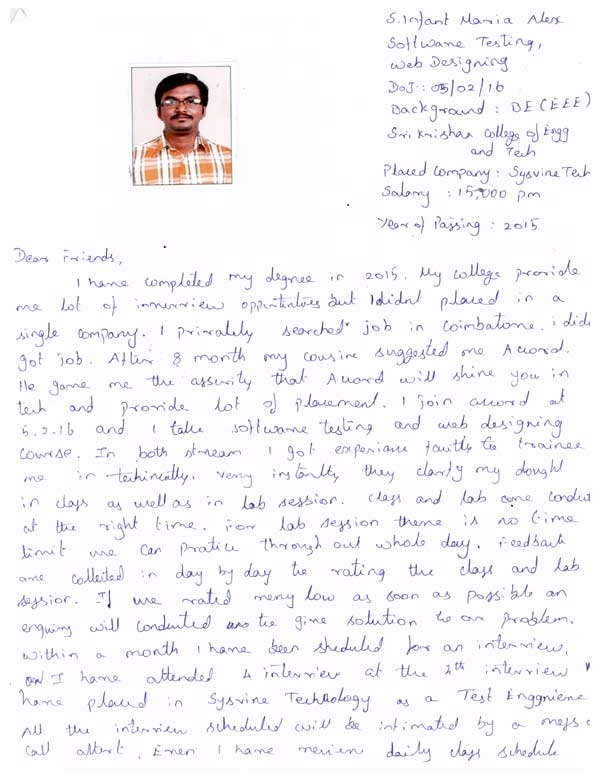 S. Infant Maria Alex
Software Testing,
Web Designing
DOJ : 05/02/16
Background : BE (EEE)
Sri Krishna College of Engg
and Tech
Placed Company : Sysvine Tech
Salary : 15,000 pm
Year of Passing : 2015
Dear Friends,
I have completed my degree in 2015. My college provide
me lot of innerview oppirtentives but I didnt placed in a
single company. I privately searched job in Coimbatore. i did
got job. After 8 month my cousine suggested me Aword.
He game me the assurity that Aword will shine you in
tech and provide lot of placement. I join aword at
5.2.16 and I take software testing and web designing
course. In both stream I got experiance faults to trainee
me in techinically. veny instantly they clarify my dought
in class as well as in lab session. class and lab are conduct
at the right time. For lab session there is no time
limit we can pratice through out whole day. Feedback
are collected in day by day to rating the class and lab
session. If we rated meny low as soon as possible an
enquiny will conducted to give solution to our problem.
within a month I have been sheduled for an interview.
I have attended 4 interview at the 4th interview
have placed in Sysvine Technology as a Test Enggniene
All the interview scheduled will be intimated by a mess
call altert. Even I have review daily class schedule